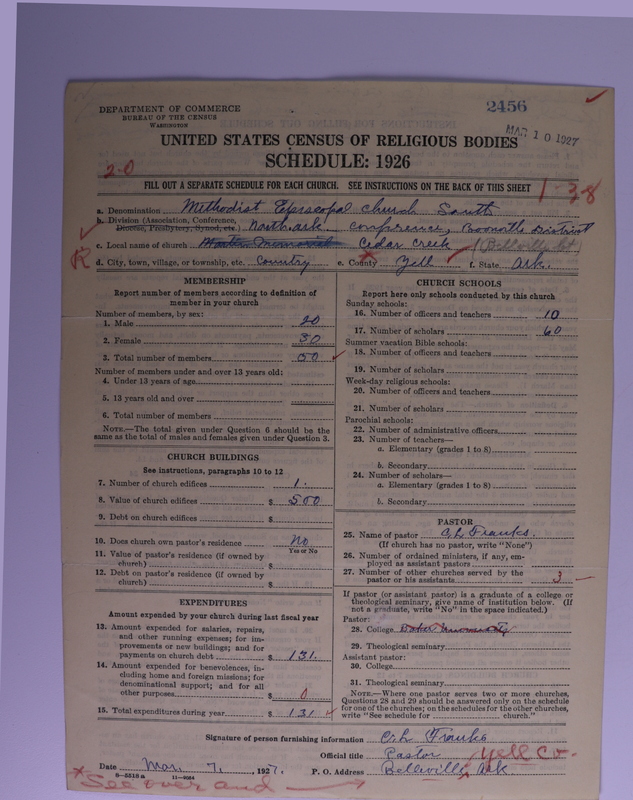 DEPARTMENT OF COMMERCE
BUREAU OF THE CENSUS
WASHINGTON
2456
MAR 10 1927
UNITED STATES CENSUS OF RELIGIOUS BODIES
SCHEDULE: 1926
2-0
FILL OUT A SEPARATE SCHEDULE FOR EACH CHURCH. SEE INSTRUCTIONS ON THE BACK OF THIS SHEET
1-38
a. Denomination Methodist Episcopal Church South
b. Division (Association, Conference, Diocese, Presbytery, Synod, etc.) North Ark. Conference, Booneville District
c. Local name of church Cedar Creek (Belleville Ct)
R
d. City, town, village, or township, etc. Country e. County Yell f. State Ark.
MEMBERSHIP
Report number of members according to definition of
member in your church
Number of members, by sex:
1. Male 20
2. Female 30
3. Total number of members 50
Number of members under and over 13 years old:
4. Under 13 years of age
5. 13 years old and over
6. Total number of members
NOTE.—The total given under Question 6 should be the
same as the total of males and females given under Question 3.
CHURCH BUILDINGS
See instructions, paragraphs 10 to 12
7. Number of church edifices 1
8. Value of church edifices $ 500
9. Debt on church edifices $
10. Does church own pastor's residence? No
Yes or No
11. Value of pastor's residence (if owned by
church) $
12. Debt on pastor's residence (if owned by
church) $
EXPENDITURES
Amount expended by your church during last fiscal year
13. Amount expended for salaries, repairs,
and other running expenses; for im-
provements or new buildings; and for
payments on church debt $ 131.
14. Amount expended for benevolences, in-
cluding home and foreign missions; for
denominational support; and for all
other purposes $ 0
15. Total expenditures during year $ 131
CHURCH SCHOOLS
Report here only schools conducted by this church
Sunday schools:
16. Number of officers and teachers 10
17. Number of scholars 60
Summer vacation Bible schools:
18. Number of officers and teachers
19. Number of scholars
Week-day religious schools:
20. Number of officers and teachers
21. Number of scholars
Parochial schools:
22. Number of administrative officers
23. Number of teachers—
a. Elementary (grades 1 to 8)
b. Secondary
24. Number of scholars—
a. Elementary (grades 1 to 8)
b. Secondary
PASTOR
25. Name of pastor C. L. Franks.
(If church has no pastor, write "None")
26. Number of ordained ministers, if any, em-
ployed as assistant pastors
27. Number of other churches served by the
pastor or his assistants 3
If pastor (or assistant pastor) is a graduate of a college or
theological seminary, give name of institution below. (If
not a graduate, write "No" in the space indicated.)
Pastor:
28. College
29. Theological seminary
Assistant pastor:
30. College
31. Theological seminary
NOTE.—Where one pastor serves two or more churches,
Questions 28 and 29 should be answered only on the schedule
for one of the churches; on the schedules for the other churches,
write "See schedule for church."
Signature of person furnishing information C. L. Franks
Official title Pastor Yell Co.
Date Mar. 7, 1927. P. O. Address Belleville, Ark
8-5518a 11-9064
* See over and